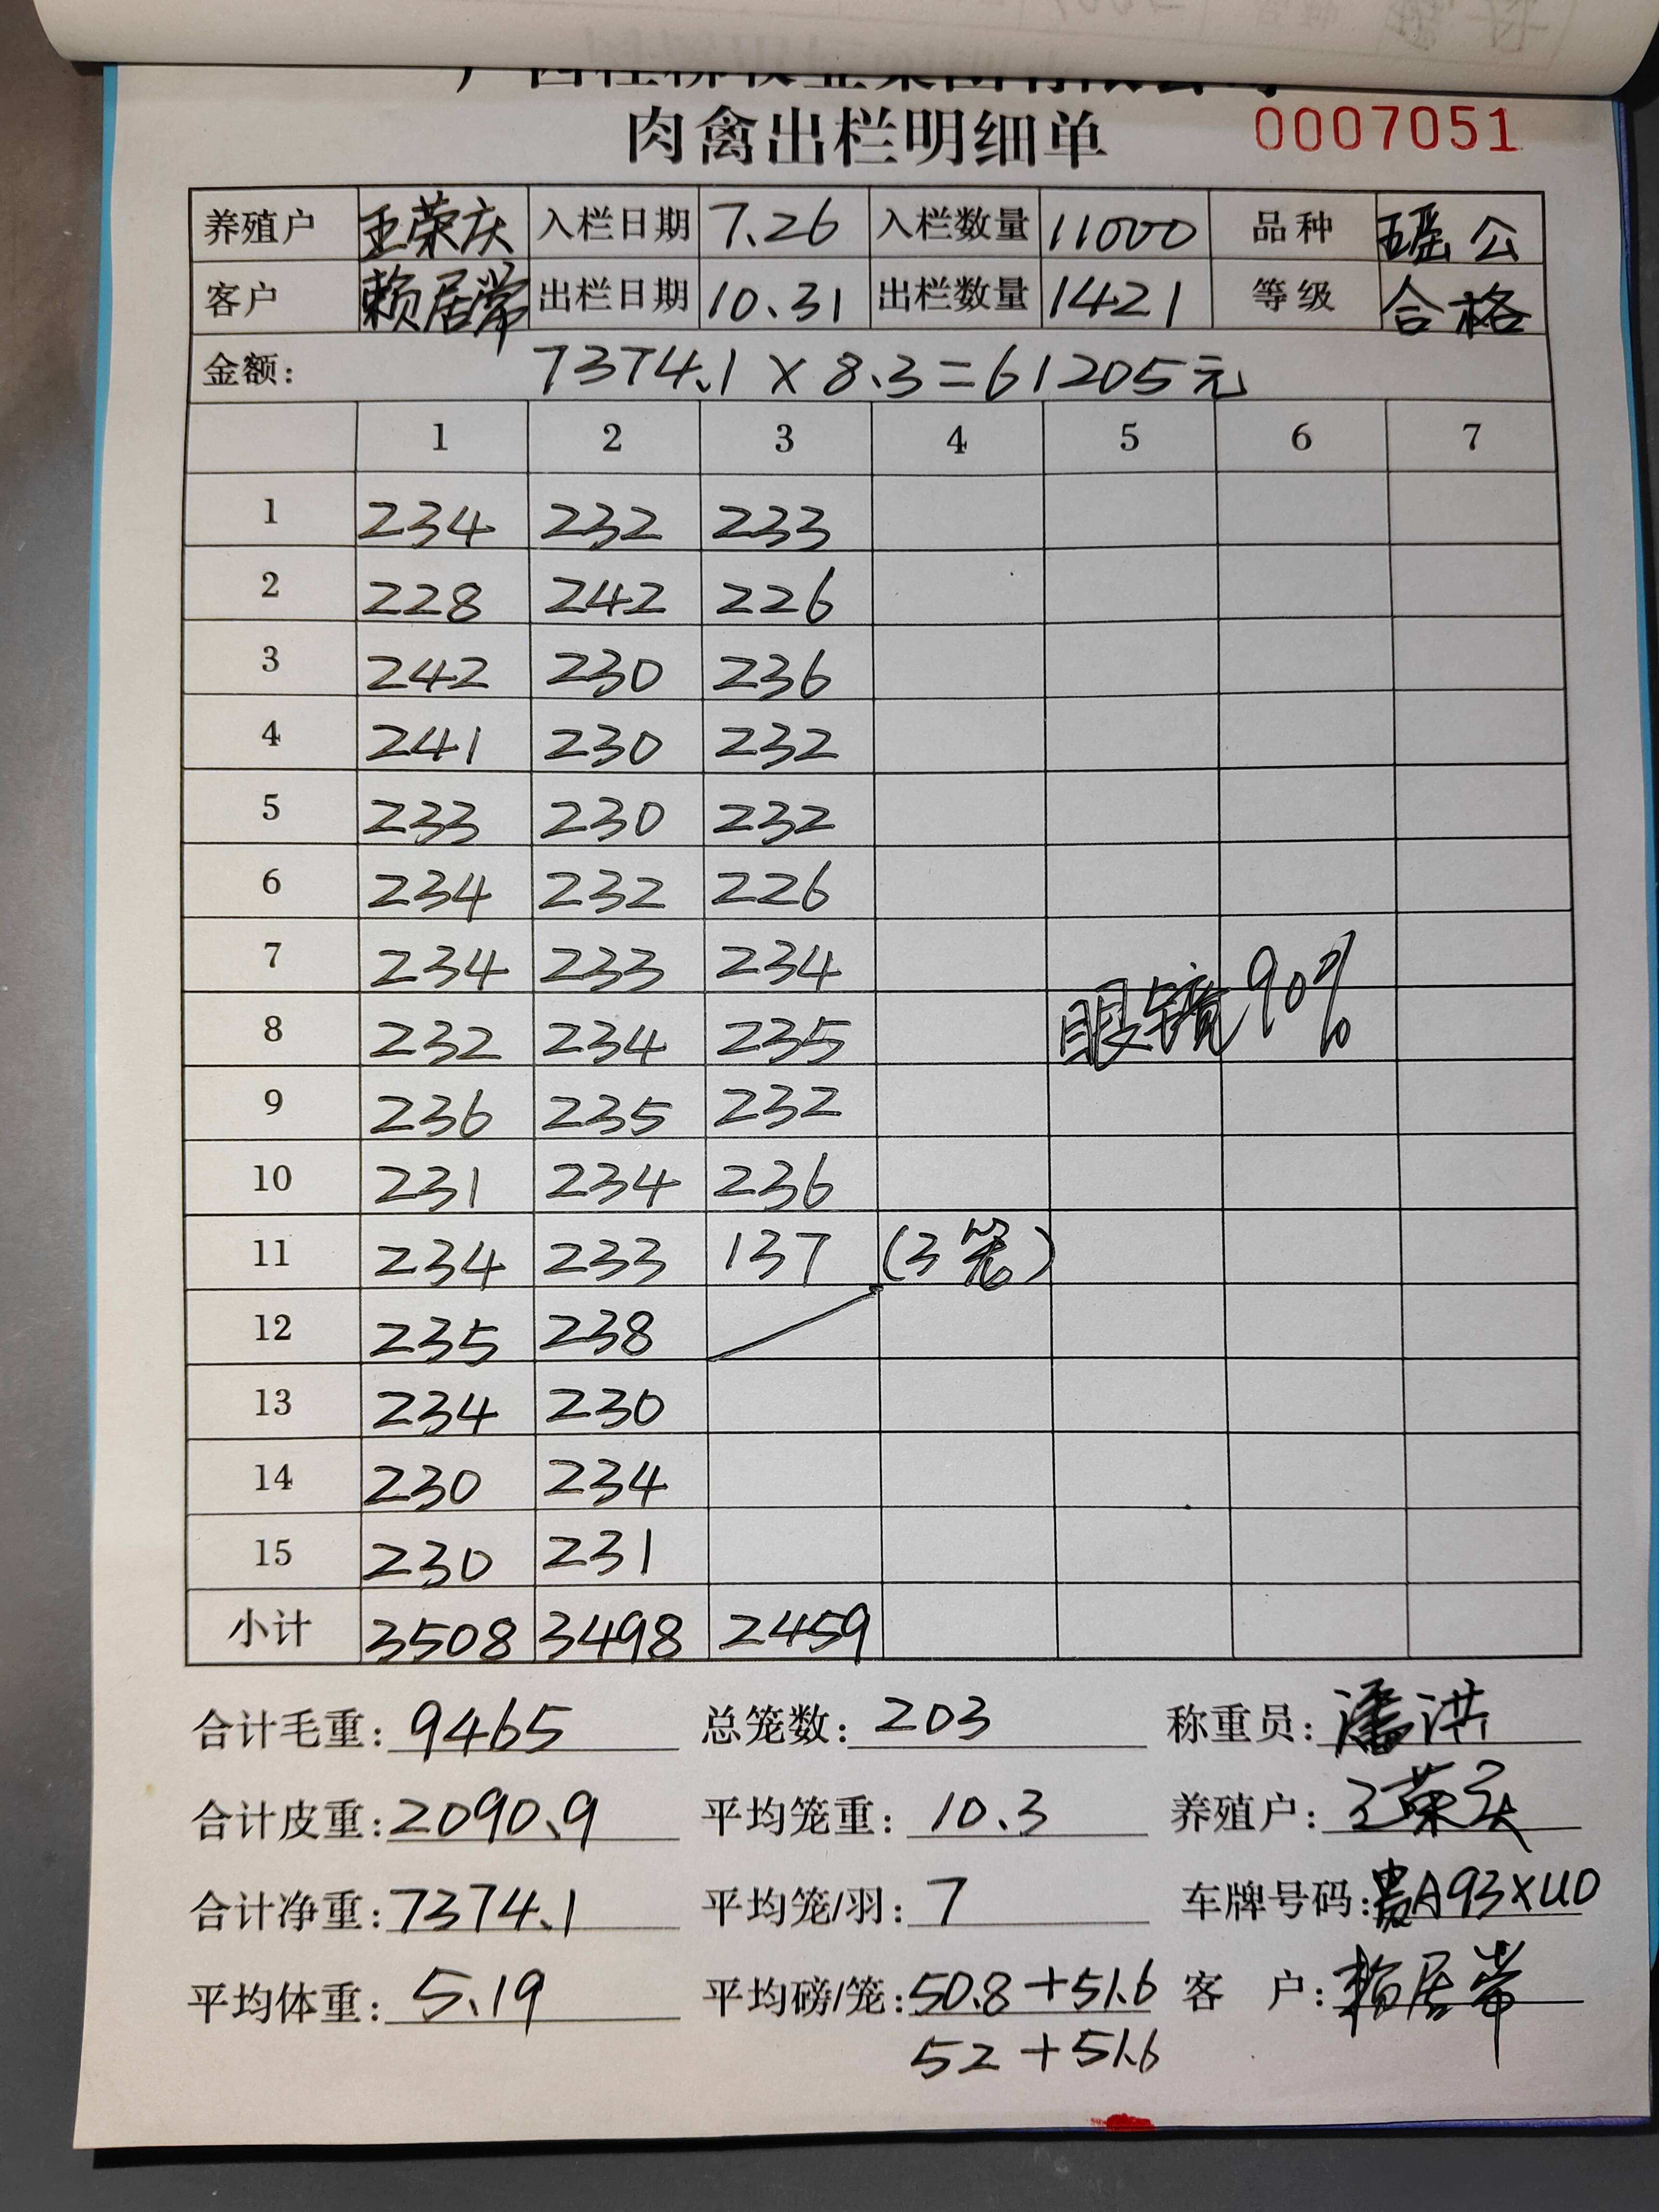 肉禽出栏明细单 0007051
养殖户 王荣庆 入栏日期 7.26 入栏数量 11000 品种 瑶公
客户 赖居常 出栏日期 10.31 出栏数量 1421 等级 合格
金额: 7374.1 × 8.3 = 61205元
1 2 3 4 5 6 7
1 234 232 233
2 228 242 226
3 242 230 236
4 241 230 232
5 233 230 232
6 234 232 226
7 234 233 234
8 232 234 235 眼镜90%
9 236 235 232
10 231 234 236
11 234 233 137 (3笼)
12 235 238
13 234 230
14 230 234
15 230 231
小计 3508 3498 2459
合计毛重: 9465 总笼数: 203 称重员: 潘洪
合计皮重: 2090.9 平均笼重: 10.3 养殖户: 王荣庆
合计净重: 7374.1 平均笼/羽: 7 车牌号码: 贵A93XU0
平均体重: 5.19 平均磅/笼: 50.8+51.6 客 户: 赖居常
52+51.6